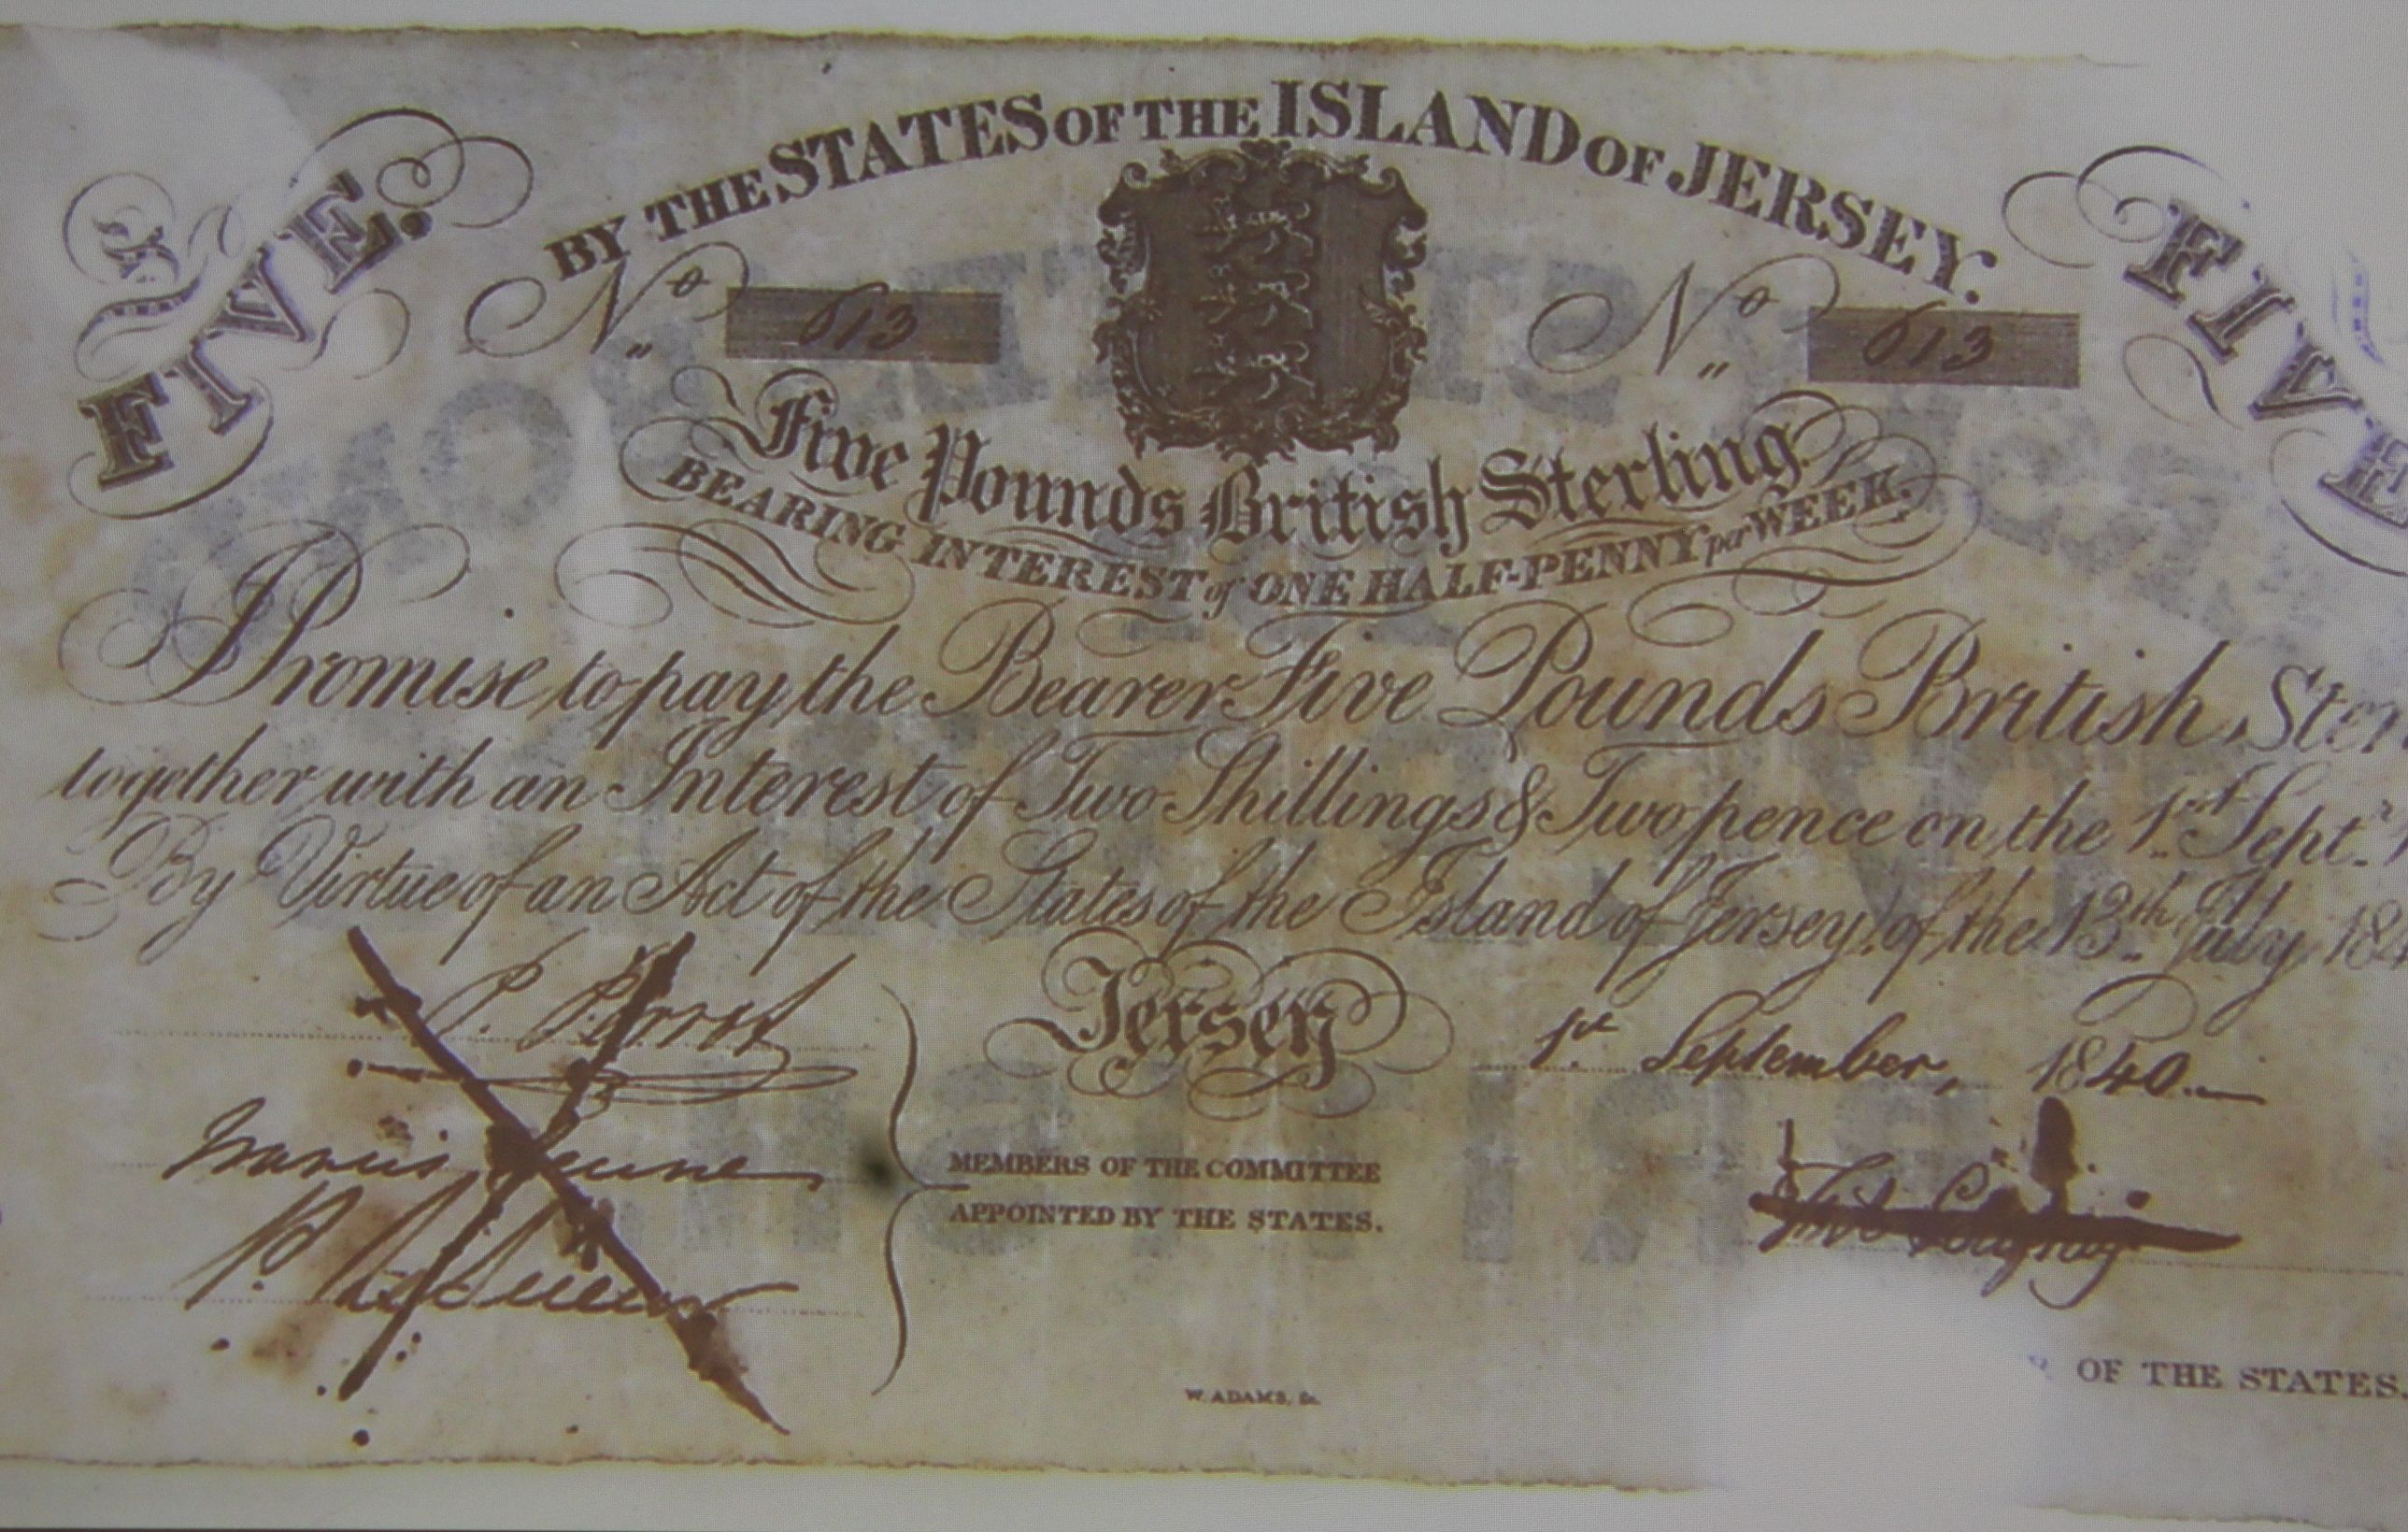 FIVE.
BY THE STATES OF THE ISLAND OF JERSEY.
FIVE
No 613
No 613
Five Pounds British Sterling
BEARING INTEREST of ONE HALF-PENNY per WEEK.
Promise to pay the Bearer Five Pounds British Ster
together with an Interest of Two Shillings & Two pence on the 1st Sept.
By Virtue of an Act of the States of the Island of Jersey, of the 13th July, 184
P. Perrot
Jersey
1st September, 1840
Francis Jeune
MEMBERS OF THE COMMITTEE
APPOINTED BY THE STATES.
OF THE STATES.
W. ADAMS, Sc.